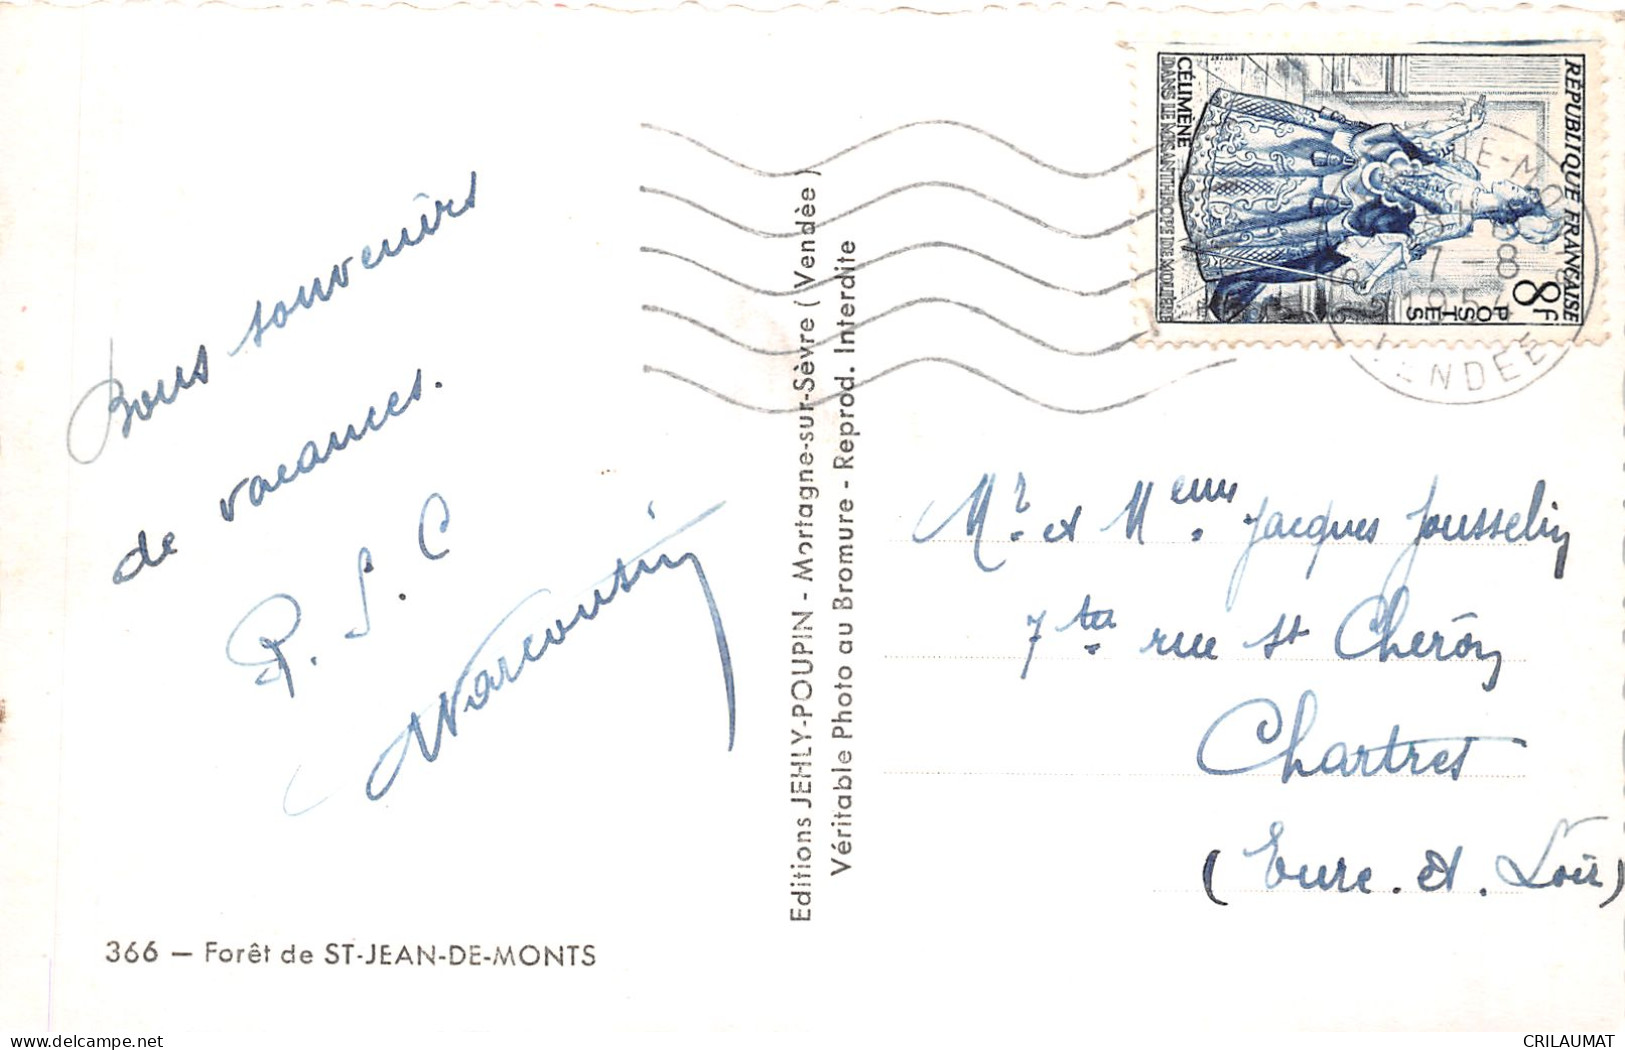 Bons souvenirs
de vacances.
CÉLIMÈNE
DANS LE MISANTHROPE DE MOLIÈRE
RÉPUBLIQUE FRANÇAISE
8F
POSTES
7-8
1954
VENDÉE
Mr. et Meme. Jacques Jousselin
7 ter rue St Chéron
Chartres
(Eure. et. Loir)
Editions JEHLY-POUPIN - Mortagne-sur-Sèvre (Vendèe)
Véritable Photo au Bromure - Reprod. Interdite
366 — Forêt de ST-JEAN-DE-MONTS
CRILAUMAT